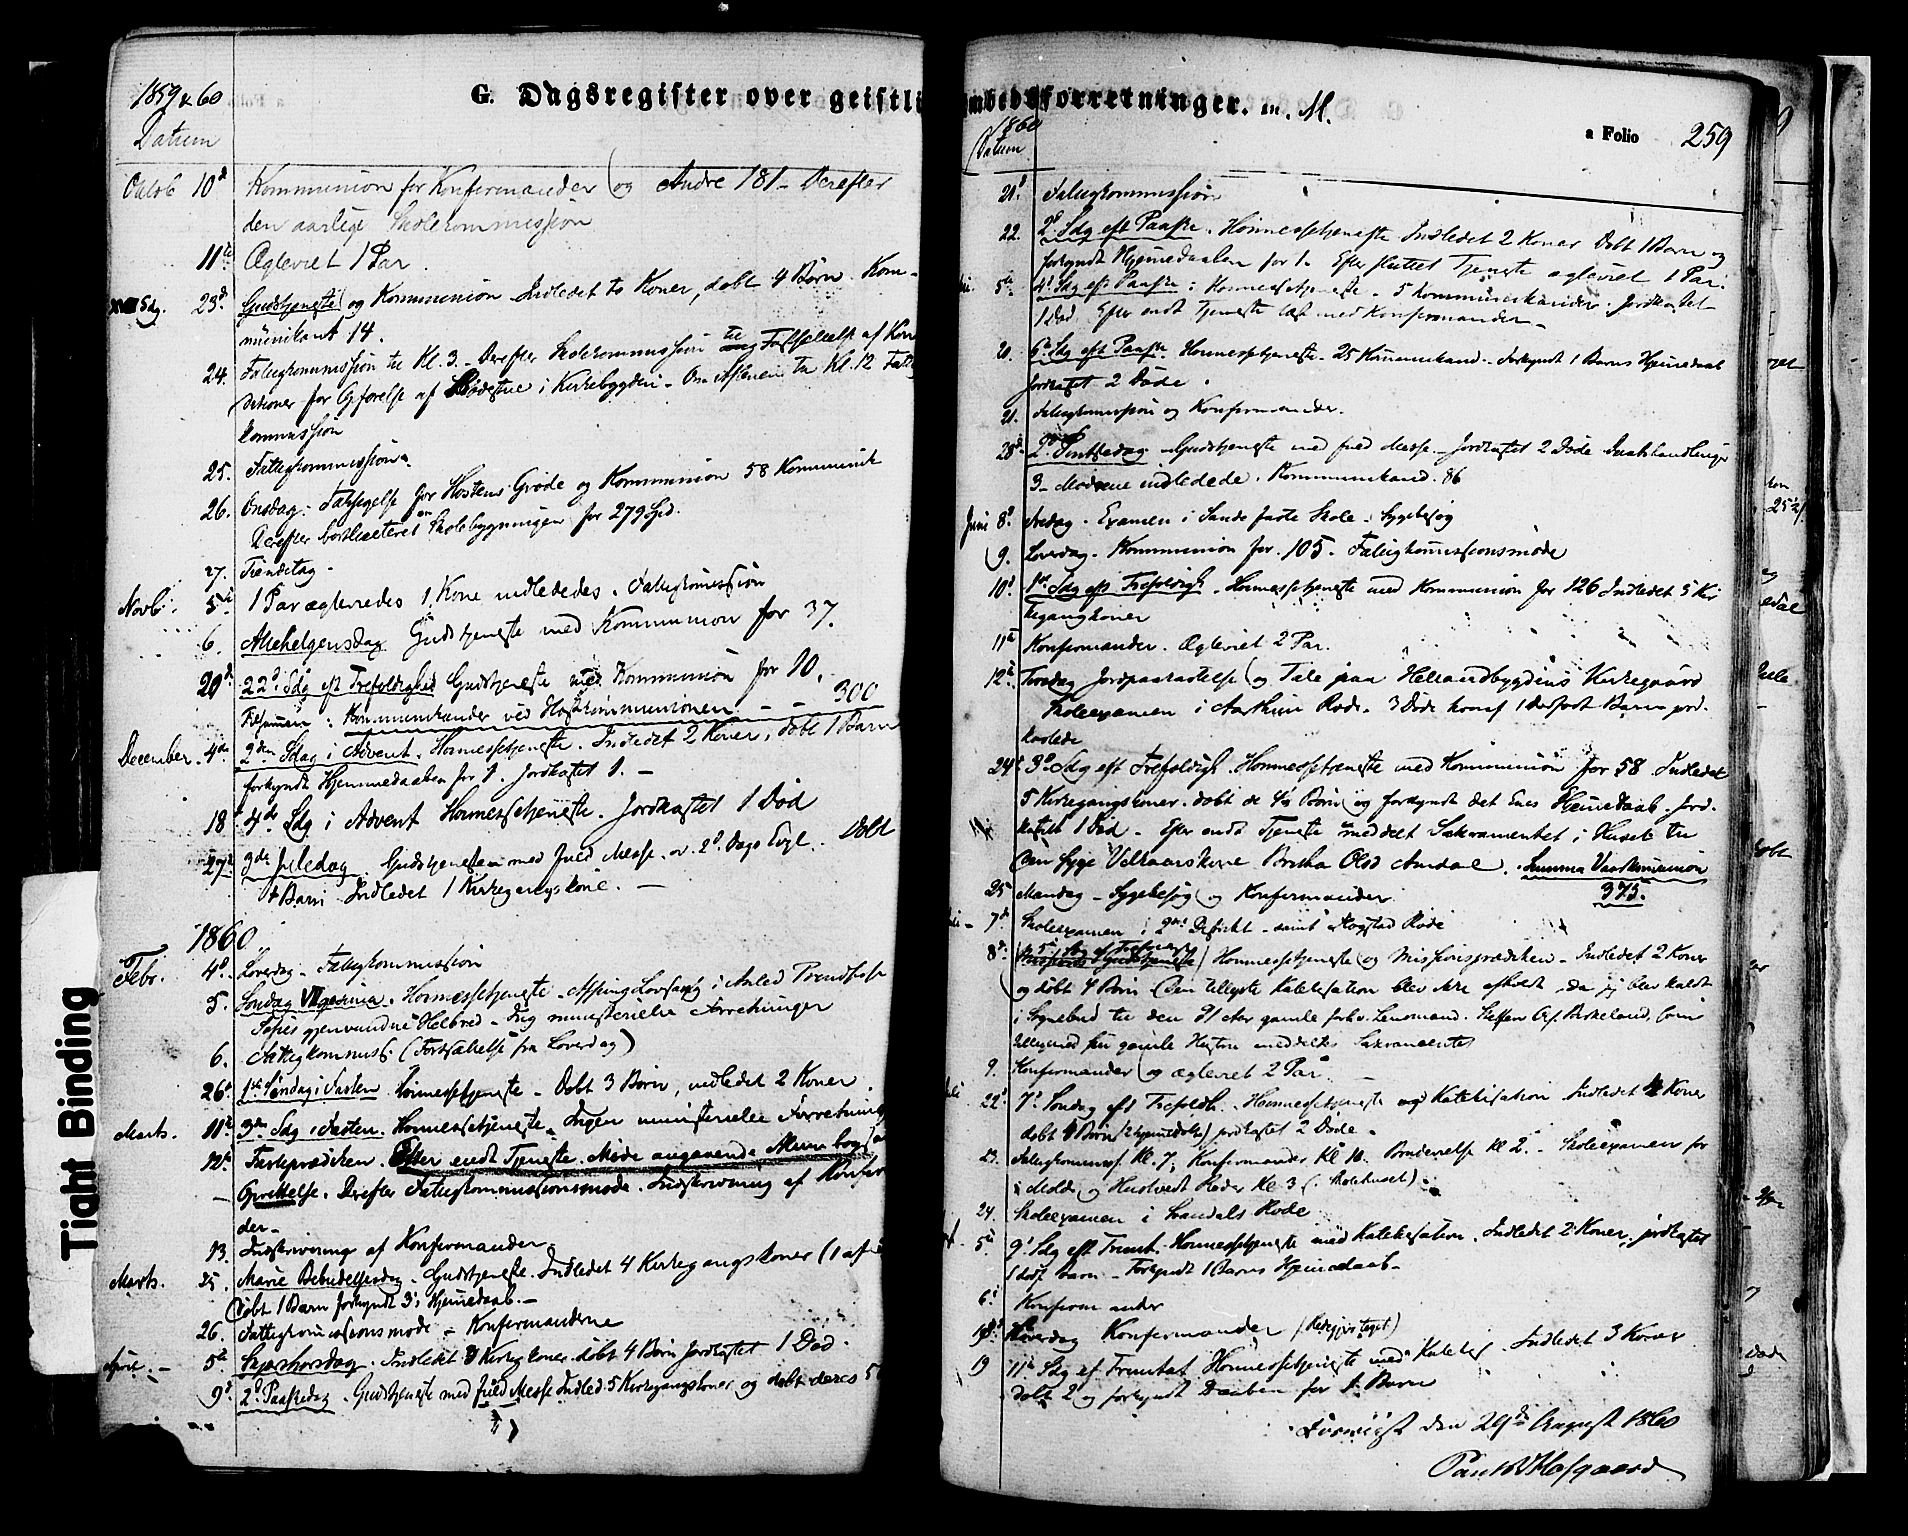 1859 & 60
G. Dagsregister over geistli
Datum
Octob 10d Kommunion for Konfirmander og Andre 181 - Derefter
den aarlige Skolekommission
11te Ægteviet 1 Par.
Sdg. 23d Gudstjeneste og Kommunion Indledet to Koner, døbt 4 Børn. Kom-
munikant 14.
24. Fatigkommission til Kl. 3. Derefter Skolekommission til af
for Opførelse af i Kirkebygden - Om Aftenen til Kl. 12 Fatt
kommission
25. Fatigkommission
26. Onsdag. Taksigelse for Høstens Grøde og Kommunion 58 Kommunik
Derefter bortliciteret Skolebygningen for 279 Spd.
27. Tiendetag -
Novb. 5te 1 Par ægteviedes 1 Kone indlededes. Fatigkomission
6. Allehelgensdag Gudstjeneste med Kommunion for 37.
20d 22d Sdg eft Trefoldighed Gudstjeneste med Kommunion for 10.
Tilsammen: Kommunikander ved Høstkommunionen - - 300
December. 4de 2den Sdag i Advent. Homessetjeneste. Indledet 2 Koner, døbt 1 Barn
forkyndt Hjemmedaaben for 1. Jordkastet 1. -
18 4de Sdg i Advent Homessetjeneste. Jordkastet 1 Død
27de 3de Juledag. Gudstjenesten med fuld Messe ov. 2d Dags Evgl. Døbt
1 Barn Indledet 1 Kirkegangskone. -
1860.
Febr. 4d Løverdag - Fatigkommission
5. Søndag Homessetjeneste - Lovsang i Anled Prindsesse
gjenvundne Helbred - Ing ministerielle Forretninger
6. Fattigkommiss. (Fortsættelse fra Løverdag)
26d 1ste Søndag i Fasten Homessetjeneste - Døbt 3 Børn, indledet 2 Koner.
Marts. 11te 3die Sdg i Fasten. Homessetjeneste. Ingen ministerielle Forretning
12te Fasteprædiken. Efter endt Tjeneste Møde angaaende Almuebogs
Oprettelse. Derefter Fatigkommissionsmøde. Indskrivning af Konfir
der.
13. Indskrivning af Konfirmander.
Marts. 25. Marie Bebudelsesdag - Gudstjeneste. Indledet 4 Kirkegangskoner (1 af
Døbt 1 Barn forkyndt 3's Hjemedaab. -
26. Fattigkomissionsmøde - Konfirmanderne
April. - 5te Skjærthorsdag. Indledet 3 Kirkeg koner døbt 4 Børn Jordkastet 1 Død.
9d 2d Paaskedag. Gudstjeneste med fuld Messe Indled. 5 Kirkegangskoner og døbt deres 5
mbedsforretninger. m. M.
1860
Datum
a Folio 259
21d Fatigkommission
22. 2d Sdg eft Paaske. Homessetjeneste Indledet 2 Koner Døbt 1 Barn og
forkyndt Hjemedaaben for 1. Efter sluttet Tjeneste ægteviet 1 Par.
5te 4d Sdg eft Paaske: Homessetjeneste. 5 Kommunikander. Jordkastet
1 Død. Efter endt Tjeneste læst med Konfirmander -
20. 6te Sdg eft Paaske. Homessetjeneste. 25 Komunikand. Forkyndt 1 Barns Hjemedaab
Jordkastet 2 Døde.
21. Fatigkommission og Konfirmander.
28d 2d Pintsedag Gudstjeneste med fuld Messe. Jordkastet 2 Døde
3 Mødrene indledede. Kommunikand. 86
Juni 8d Fredag. Examen i Sande faste Skole. Sygebesøg
9. Løverdag. Kommunion for 105. Fatigkomissionsmøde
10d 1ste Sdg eft Trefoldigh. Homessetjeneste med Kommunion for 126 Indledet 5 Kir
kegangkoner
11te Konfirmander. Ægteviet 2 Par.
12te Tirsdag Jordpaakastelse og Tale paa Helland Kirkegaard
Skoleexamen i Rode. 3 Døde hvoraf 1 dødfødt Barn jord-
kastede
24d 3d Sdg eft Trefoldigh. Homessetjeneste med Kommunion for 58 Indledet
5 Kirkegangskoner. døbt de 4's Børn og forkyndt det Enes Hjemedaab. Jord-
kastet 1 Død. Efter endt Tjeneste meddelt Sakramentet i Huset til
den syge Brithe Olsd Aardal. Summa Vaarkomunion
25 Mandag - Sygebesøg og Konfirmander 375.
7d Skoleexamen i 2det Distrikt samt Rode
8d 5te Sdg ef Trefoldigh Homessetjeneste og Missionsprædiken - Indledet 2 Koner
og døbt 4 Børn (Den tillyste Katekisation blev ikke afholdt, da jeg blev kaldt
i Sognebud til den 91 Aar gamle forhv. Lensmand. Steffen Birkeland, som
tilligemed sin gamle Hustru meddeltes Sakramentet
9. Konfirmander og ægteviet 2 Par. -
22d 7d Søndag eft Trefoldh. Homessetjeneste og Katekisation Indledet 4 Koner
døbt 4 Børn (2 hjemedøbte) jordkastet 2 Døde.
23. Fatigkommiss. Kl. 7, Konfirmander Kl 10. Kl 2. - Skoleexamen for
i Molde og Hustvedt Roder Kl 3 (i Skolehuset)
24. Skoleexamen i Rode
5te 9d Sdg eft Trinit. Homessetjeneste med Katekisation. Indledet 2 Koner, jordkastet
1 dødf Barn. Forkyndt 1 Barns Hjemedaab -
6d Konfirmander
18d Løverdag Konfirmander
19 11te Sdg ef Trinitat. Homessetjeneste med Katekis. Indledet 3 Koner
Døbt 2 og forkyndt Daaben for 1 Barn
den 29de August 1860
Hofgaard
Tight Binding